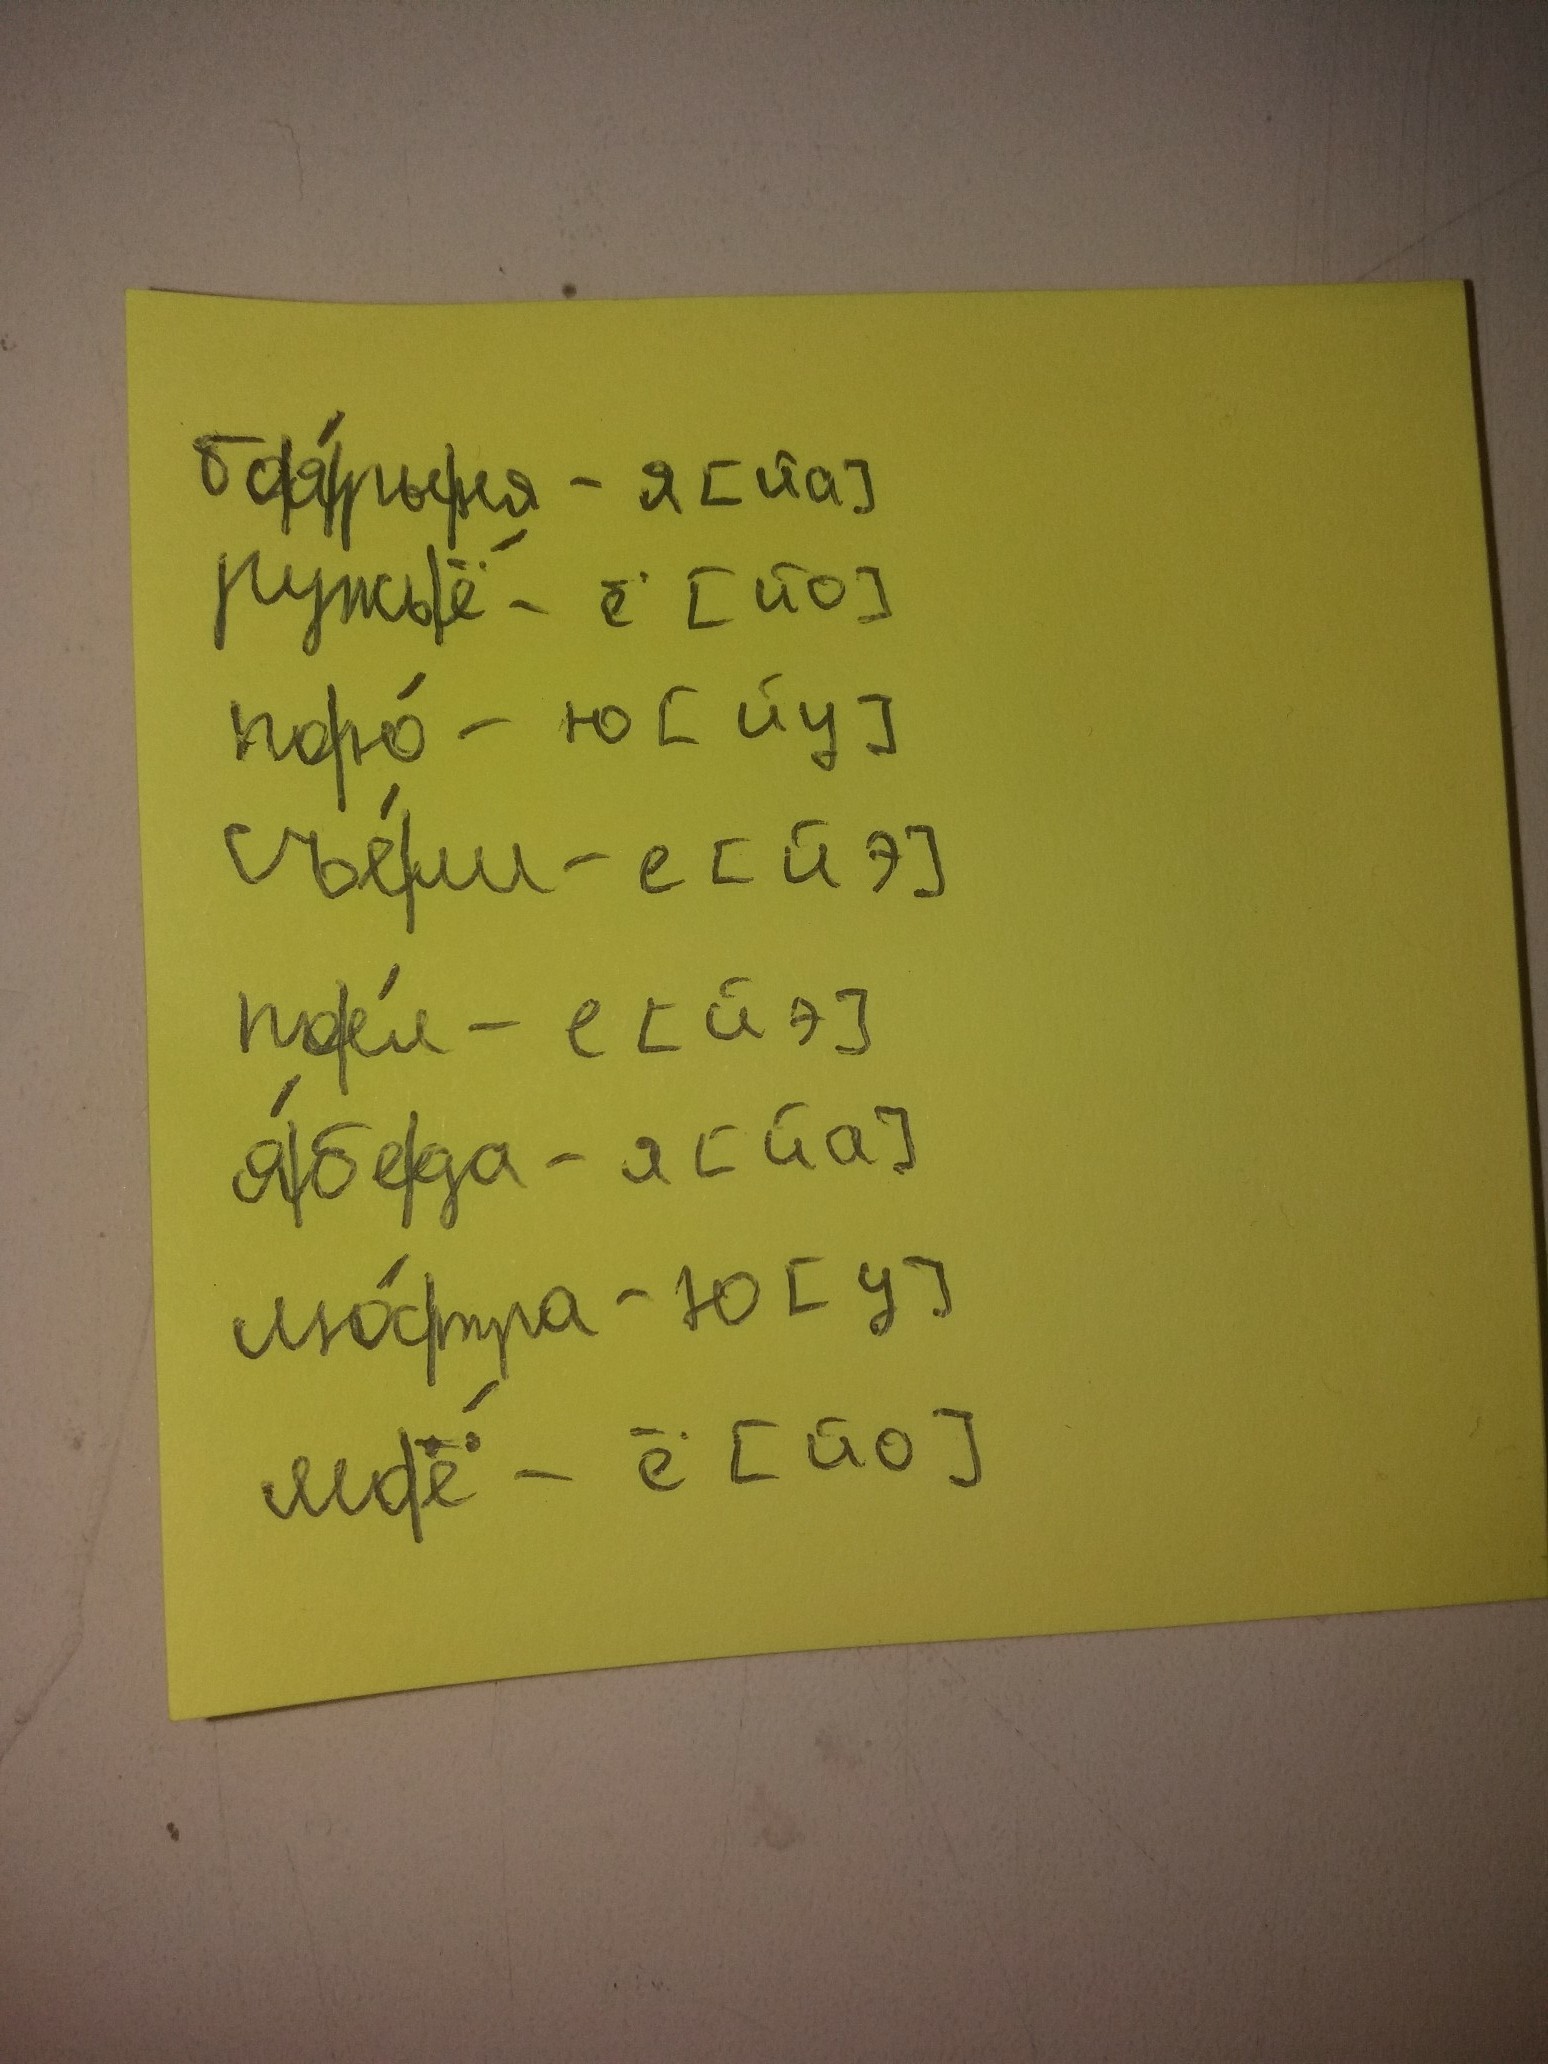 боя́рыня - я [йа]
ружьё́ - ё [йо]
пою́ - ю [йу]
съе́ли - е [йэ]
пое́л - е [йэ]
я́беда - я [йа]
лю́стра - ю [у]
моё́ - ё [йо]